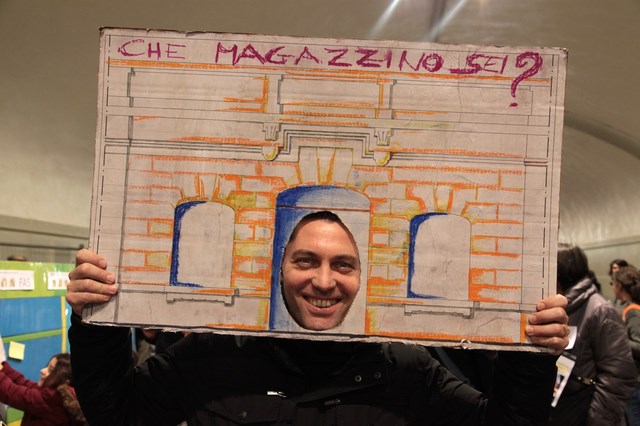 CHE MAGAZZINO SEI?
FAS